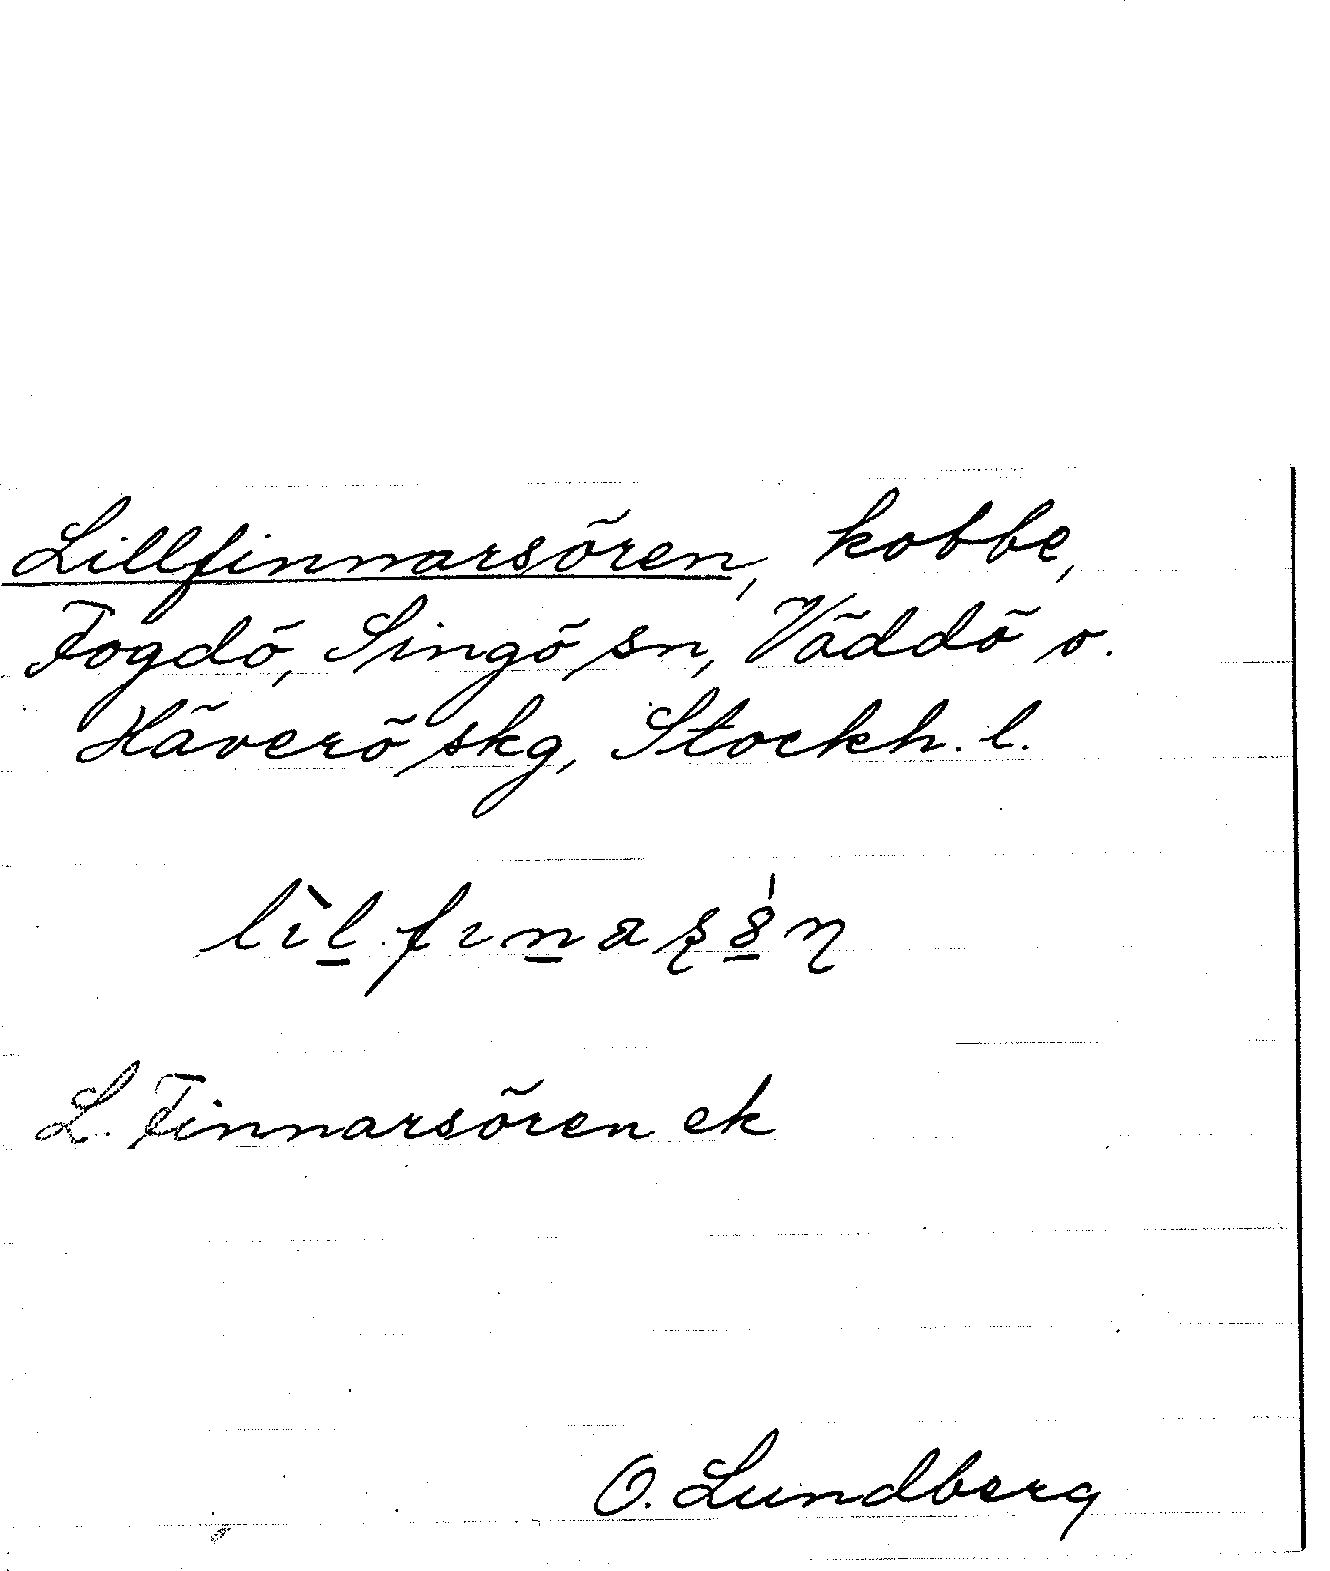 Lillfinnarsören, kobbe,
Fogdö, Singö sn, Väddö o.
Häverö skg, Stockh. l.
L. Finnarsören ek
O. Lundberg